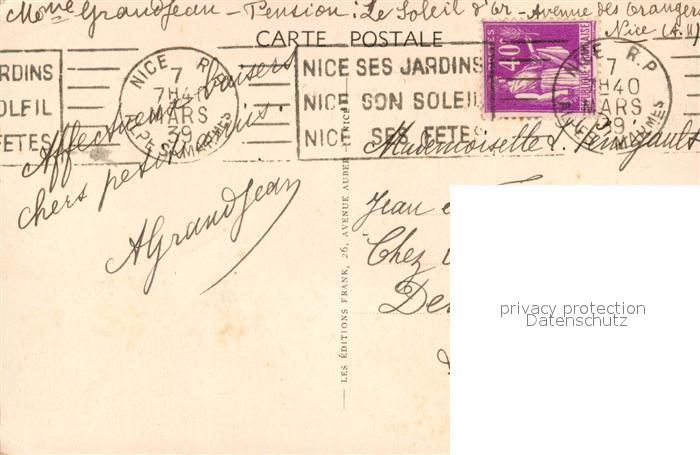 Mme GrandJean - Pension: Le Soleil d'Or - Avenue des Orangers
Nice (A.M)
CARTE POSTALE
JARDINS
SOLEIL
FETES
NICE R.P
7
7H40
MARS
39
ALPES MARITIMES
NICE SES JARDINS
NICE SON SOLEIL
NICE SES FETES
POSTES
40c
NICE R.P
7
7H40
MARS
39
ALPES MARITIMES
Affectueux baisers
chers petits amis.
AGrandJean
Mademoiselle S.
Jean
Chez
LES ÉDITIONS FRANK, 26, AVENUE AUBER - NICE
privacy protection
Datenschutz